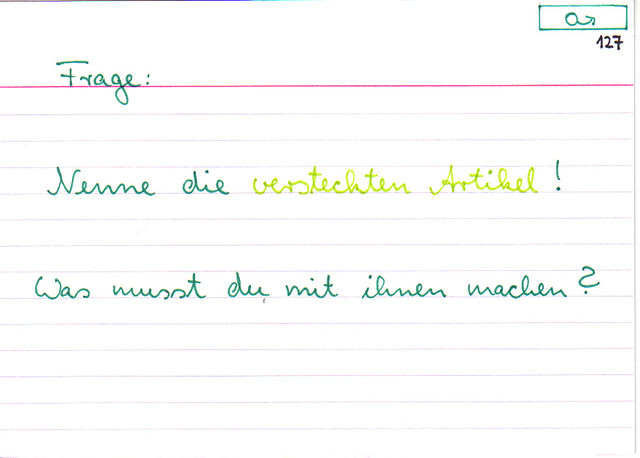 127
Frage:
Nenne die versteckten Artikel!
Was musst du mit ihnen machen?